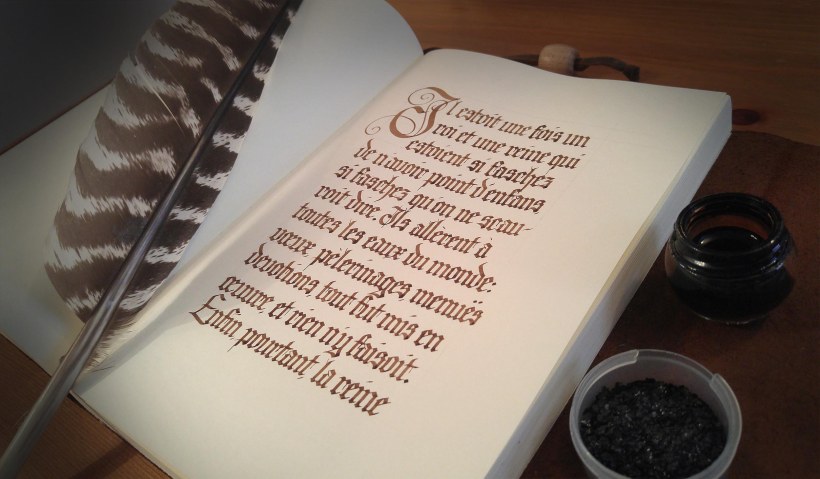 Il estoit une fois un
roi et une reine qui
estoient si fasches
de n'avoir point d'enfans,
si fasches qu'on ne scau-
roit dire. Ils allèrent à
toutes les eaux du monde:
vœux, pèlerinages, menuës
dévotions, tout fut mis en
œuvre, et rien n'y faisoit.
Enfin, pourtant, la reine